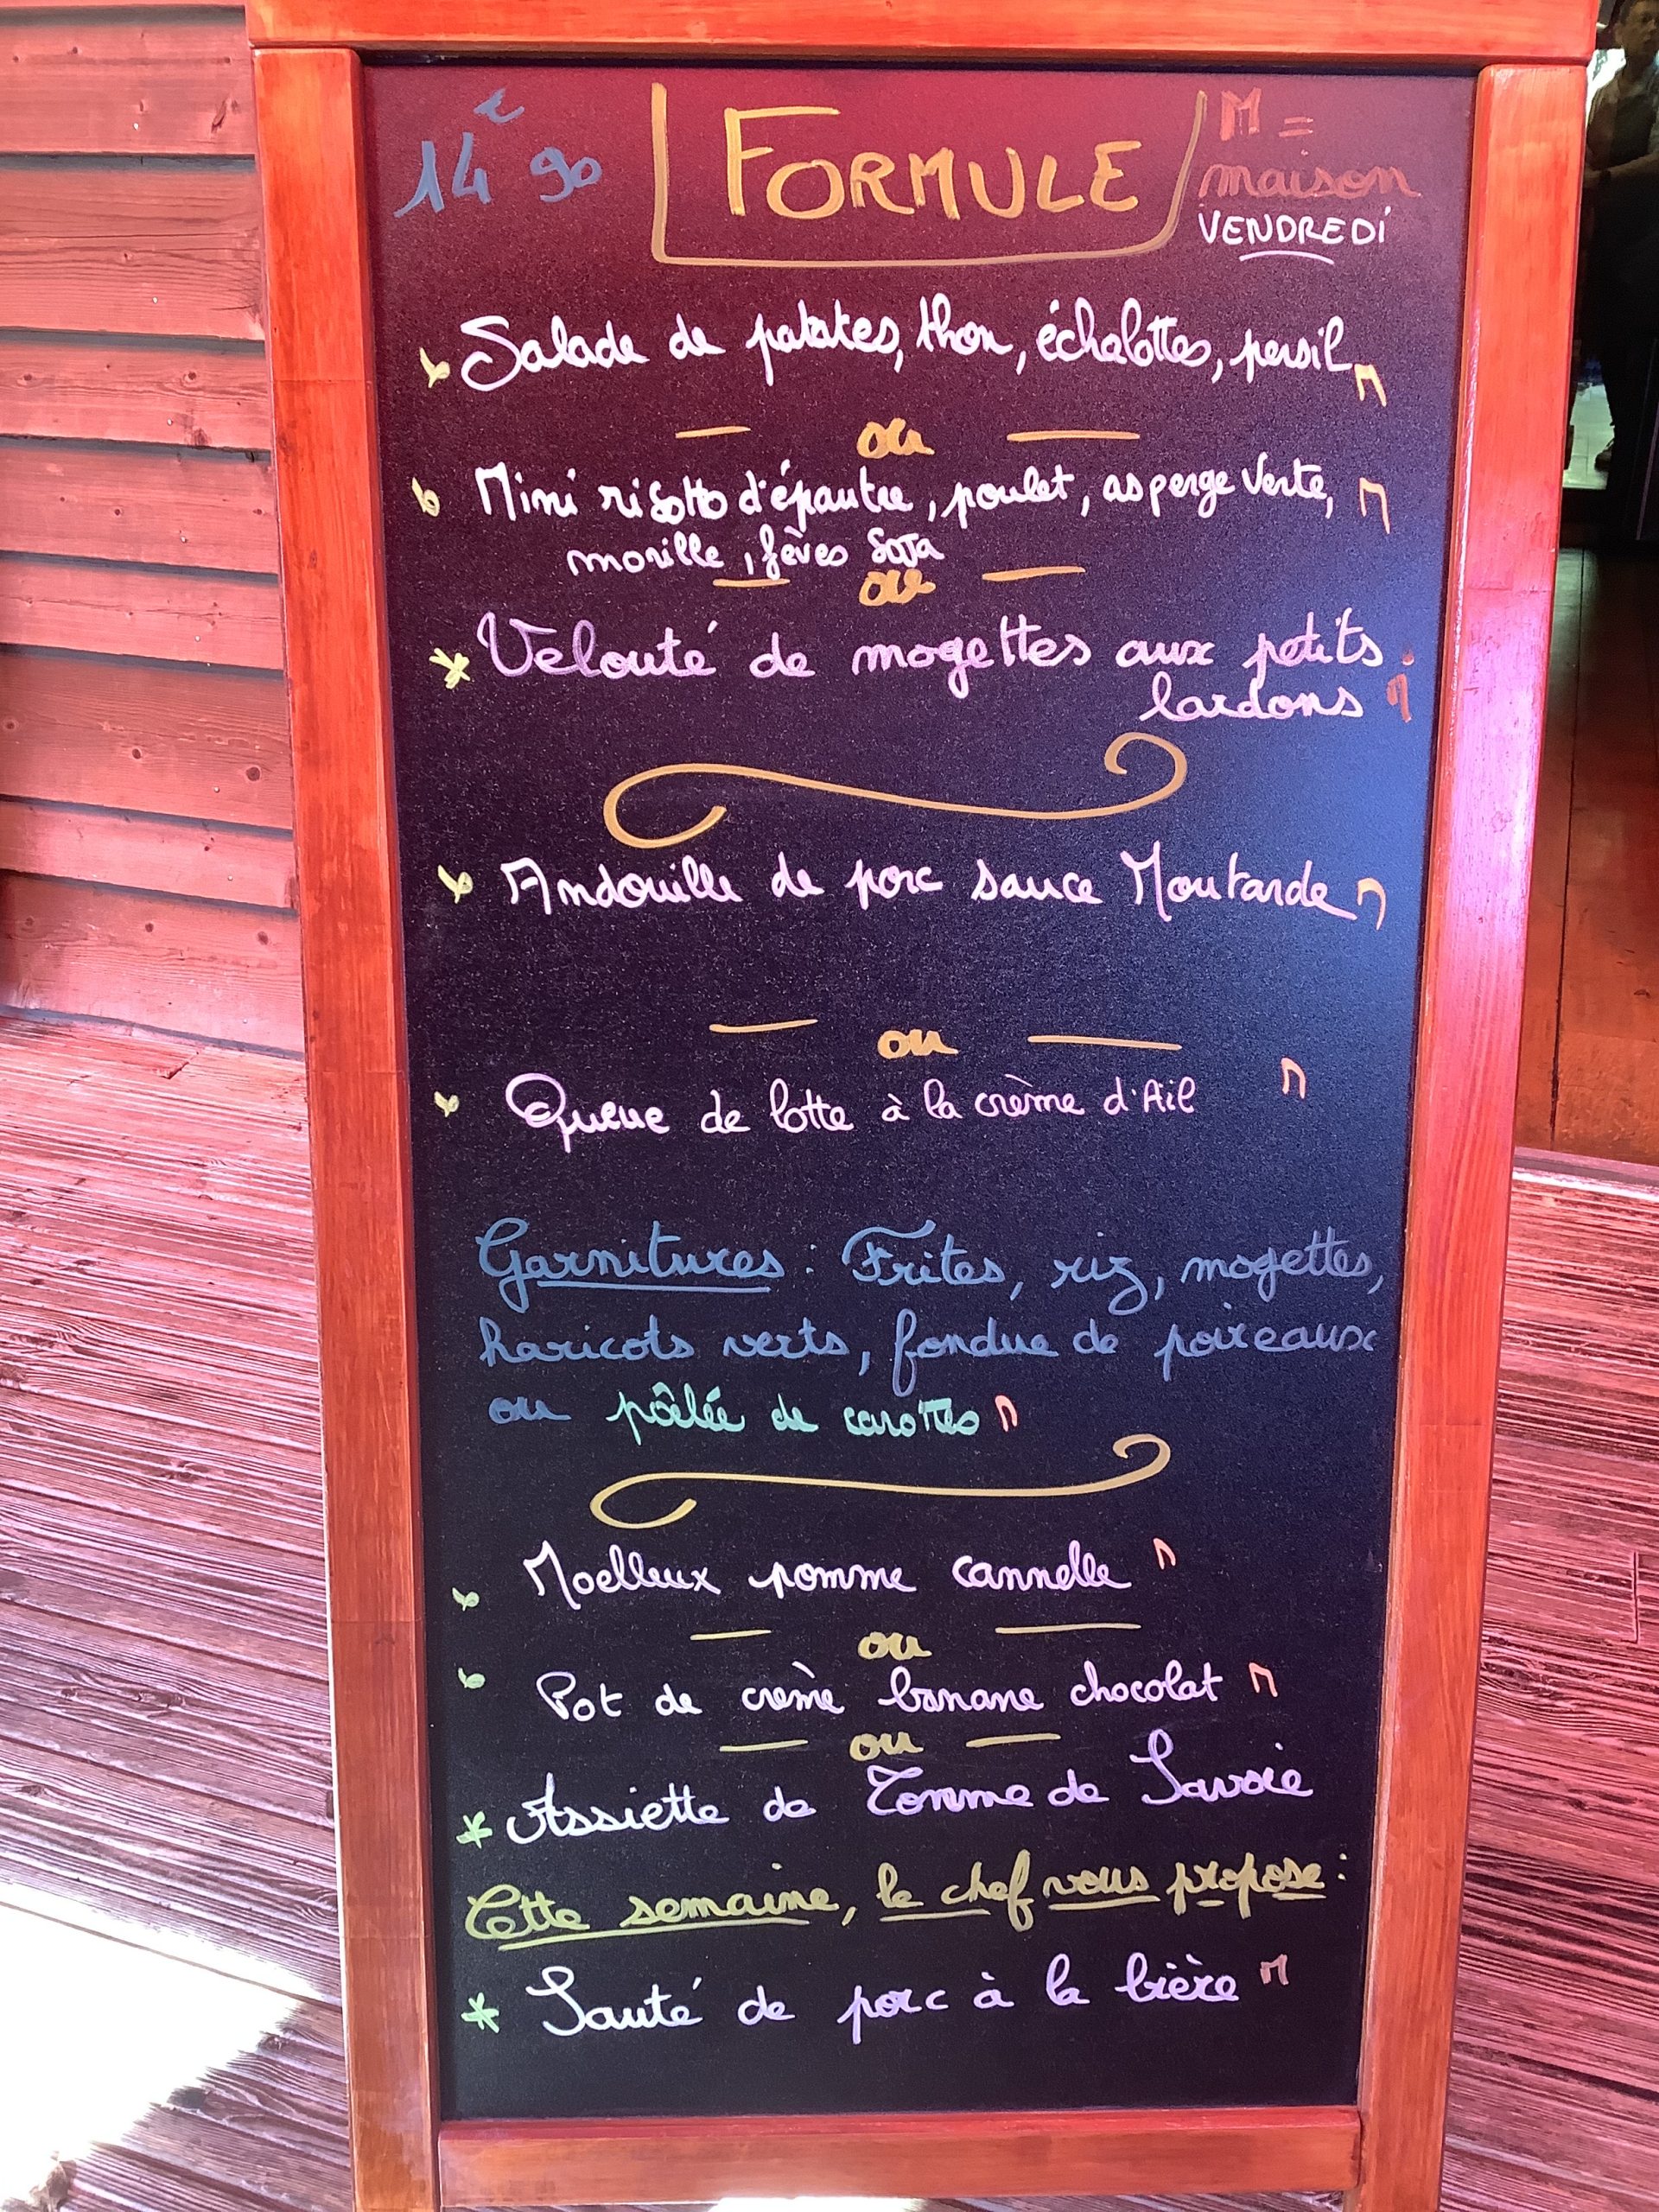 14€90
FORMULE
M =
maison
VENDREDI
Salade de patates, thon, échalottes, persil M
ou
Mini risotto d'épautre, poulet, asperge verte, M
morille, fèves Soja
ou
Velouté de mogettes aux petits
lardons M
Andouille de porc sauce Moutarde M
ou
Queue de lotte à la crème d'Ail M
Garnitures : Frites, riz, mogettes,
haricots verts, fondue de poireaux
ou pôêlée de carottes M
Moelleux pomme cannelle M
ou
Pot de crème banane chocolat M
ou
* Assiette de Tomme de Savoie
Cette semaine, le chef vous propose :
* Sauté de porc à la bière M